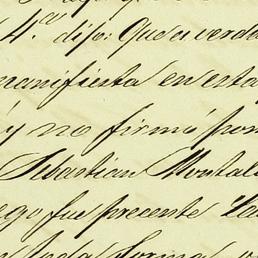 4.ª dijo: Que a verda
manifiesta en esta
y no firmó por
Sebastian Montal
ego fue presente